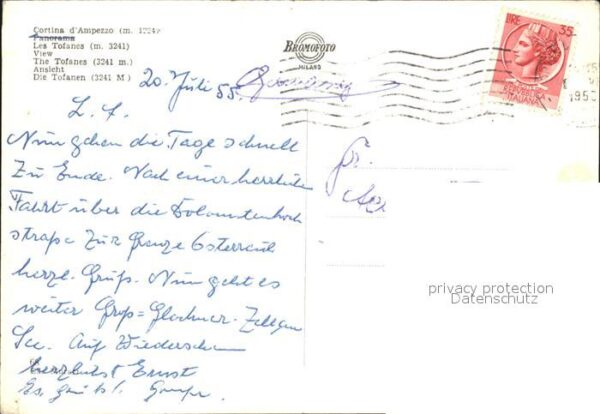 Cortina d'Ampezzo (m. 1224)
Panorama
Les Tofanes (m. 3241)
View
The Tofanes (3241 m.)
Ansicht
Die Tofanen (3241 M)
BROMOFOTO
MILANO
LIRE 35
REPUBBLICA
ITALIANA
195
20. Juli 55.
L. f.
Nun gehen die Tage schnell
zu Ende. Nach einer herrlichen
Fahrt über die Dolomitenhoch
straße zur Grenze Österreich
herzl. Grüß. Nun geht es
weiter Groß=Glockner. Zell am
See. Auf Wiedersehen
herzlichst Ernst
Fr.
privacy protection
Datenschutz